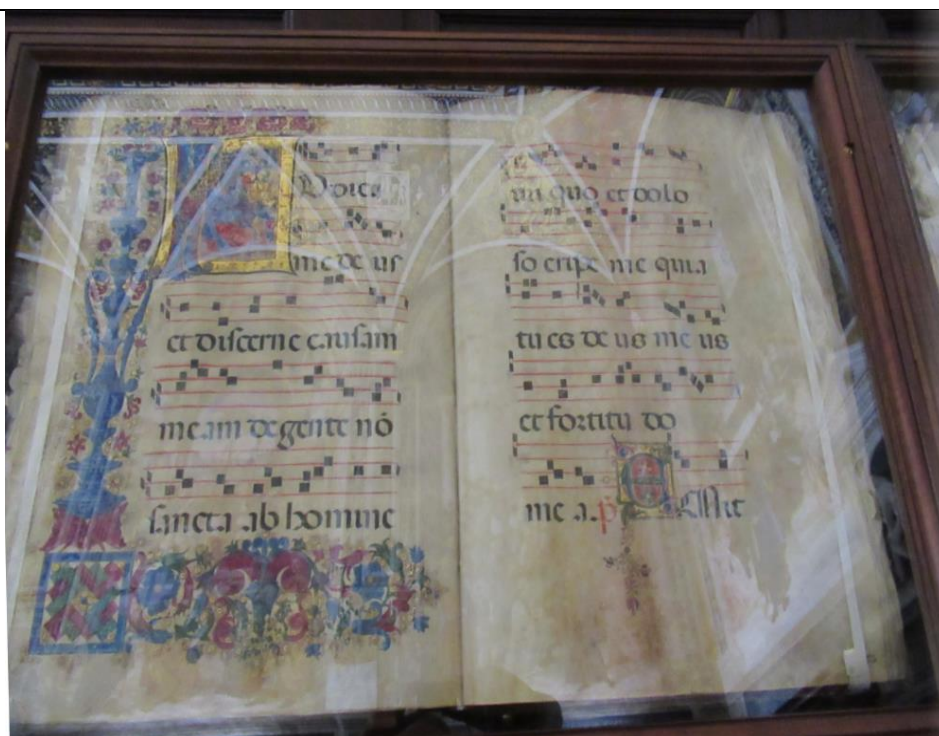 Vdica
me de us
et discerne causam
meam de gente nō
sancta ab homine
ini quo et dolo
so eripe me quia
tu es de us me us
et fortitu do
me a. p̄ EMit